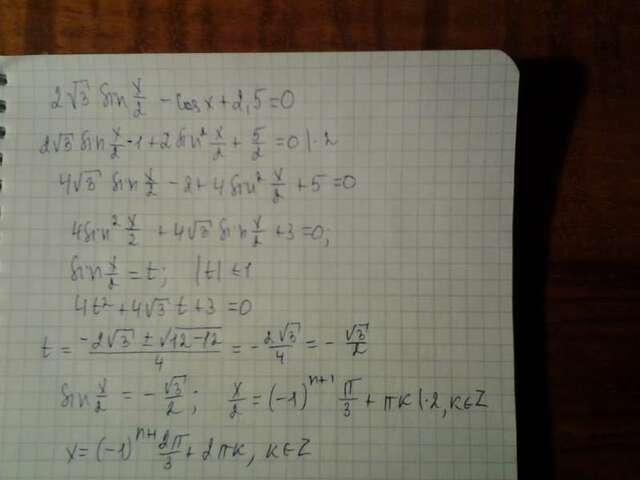 2√3 sin x/2 - cos x + 2,5 = 0
2√3 sin x/2 - 1 + 2 sin² x/2 + 5/2 = 0 |·2
4√3 sin x/2 - 2 + 4 sin² x/2 + 5 = 0
4 sin² x/2 + 4√3 sin x/2 + 3 = 0;
sin x/2 = t; |t| ≤ 1
4t² + 4√3 t + 3 = 0
t = (-2√3 ± √(12-12))/4 = -2√3/4 = -√3/2
sin x/2 = -√3/2; x/2 = (-1)^(n+1) π/3 + πk |·2, k∈Z
x = (-1)^(n+1) 2π/3 + 2πk, k∈Z